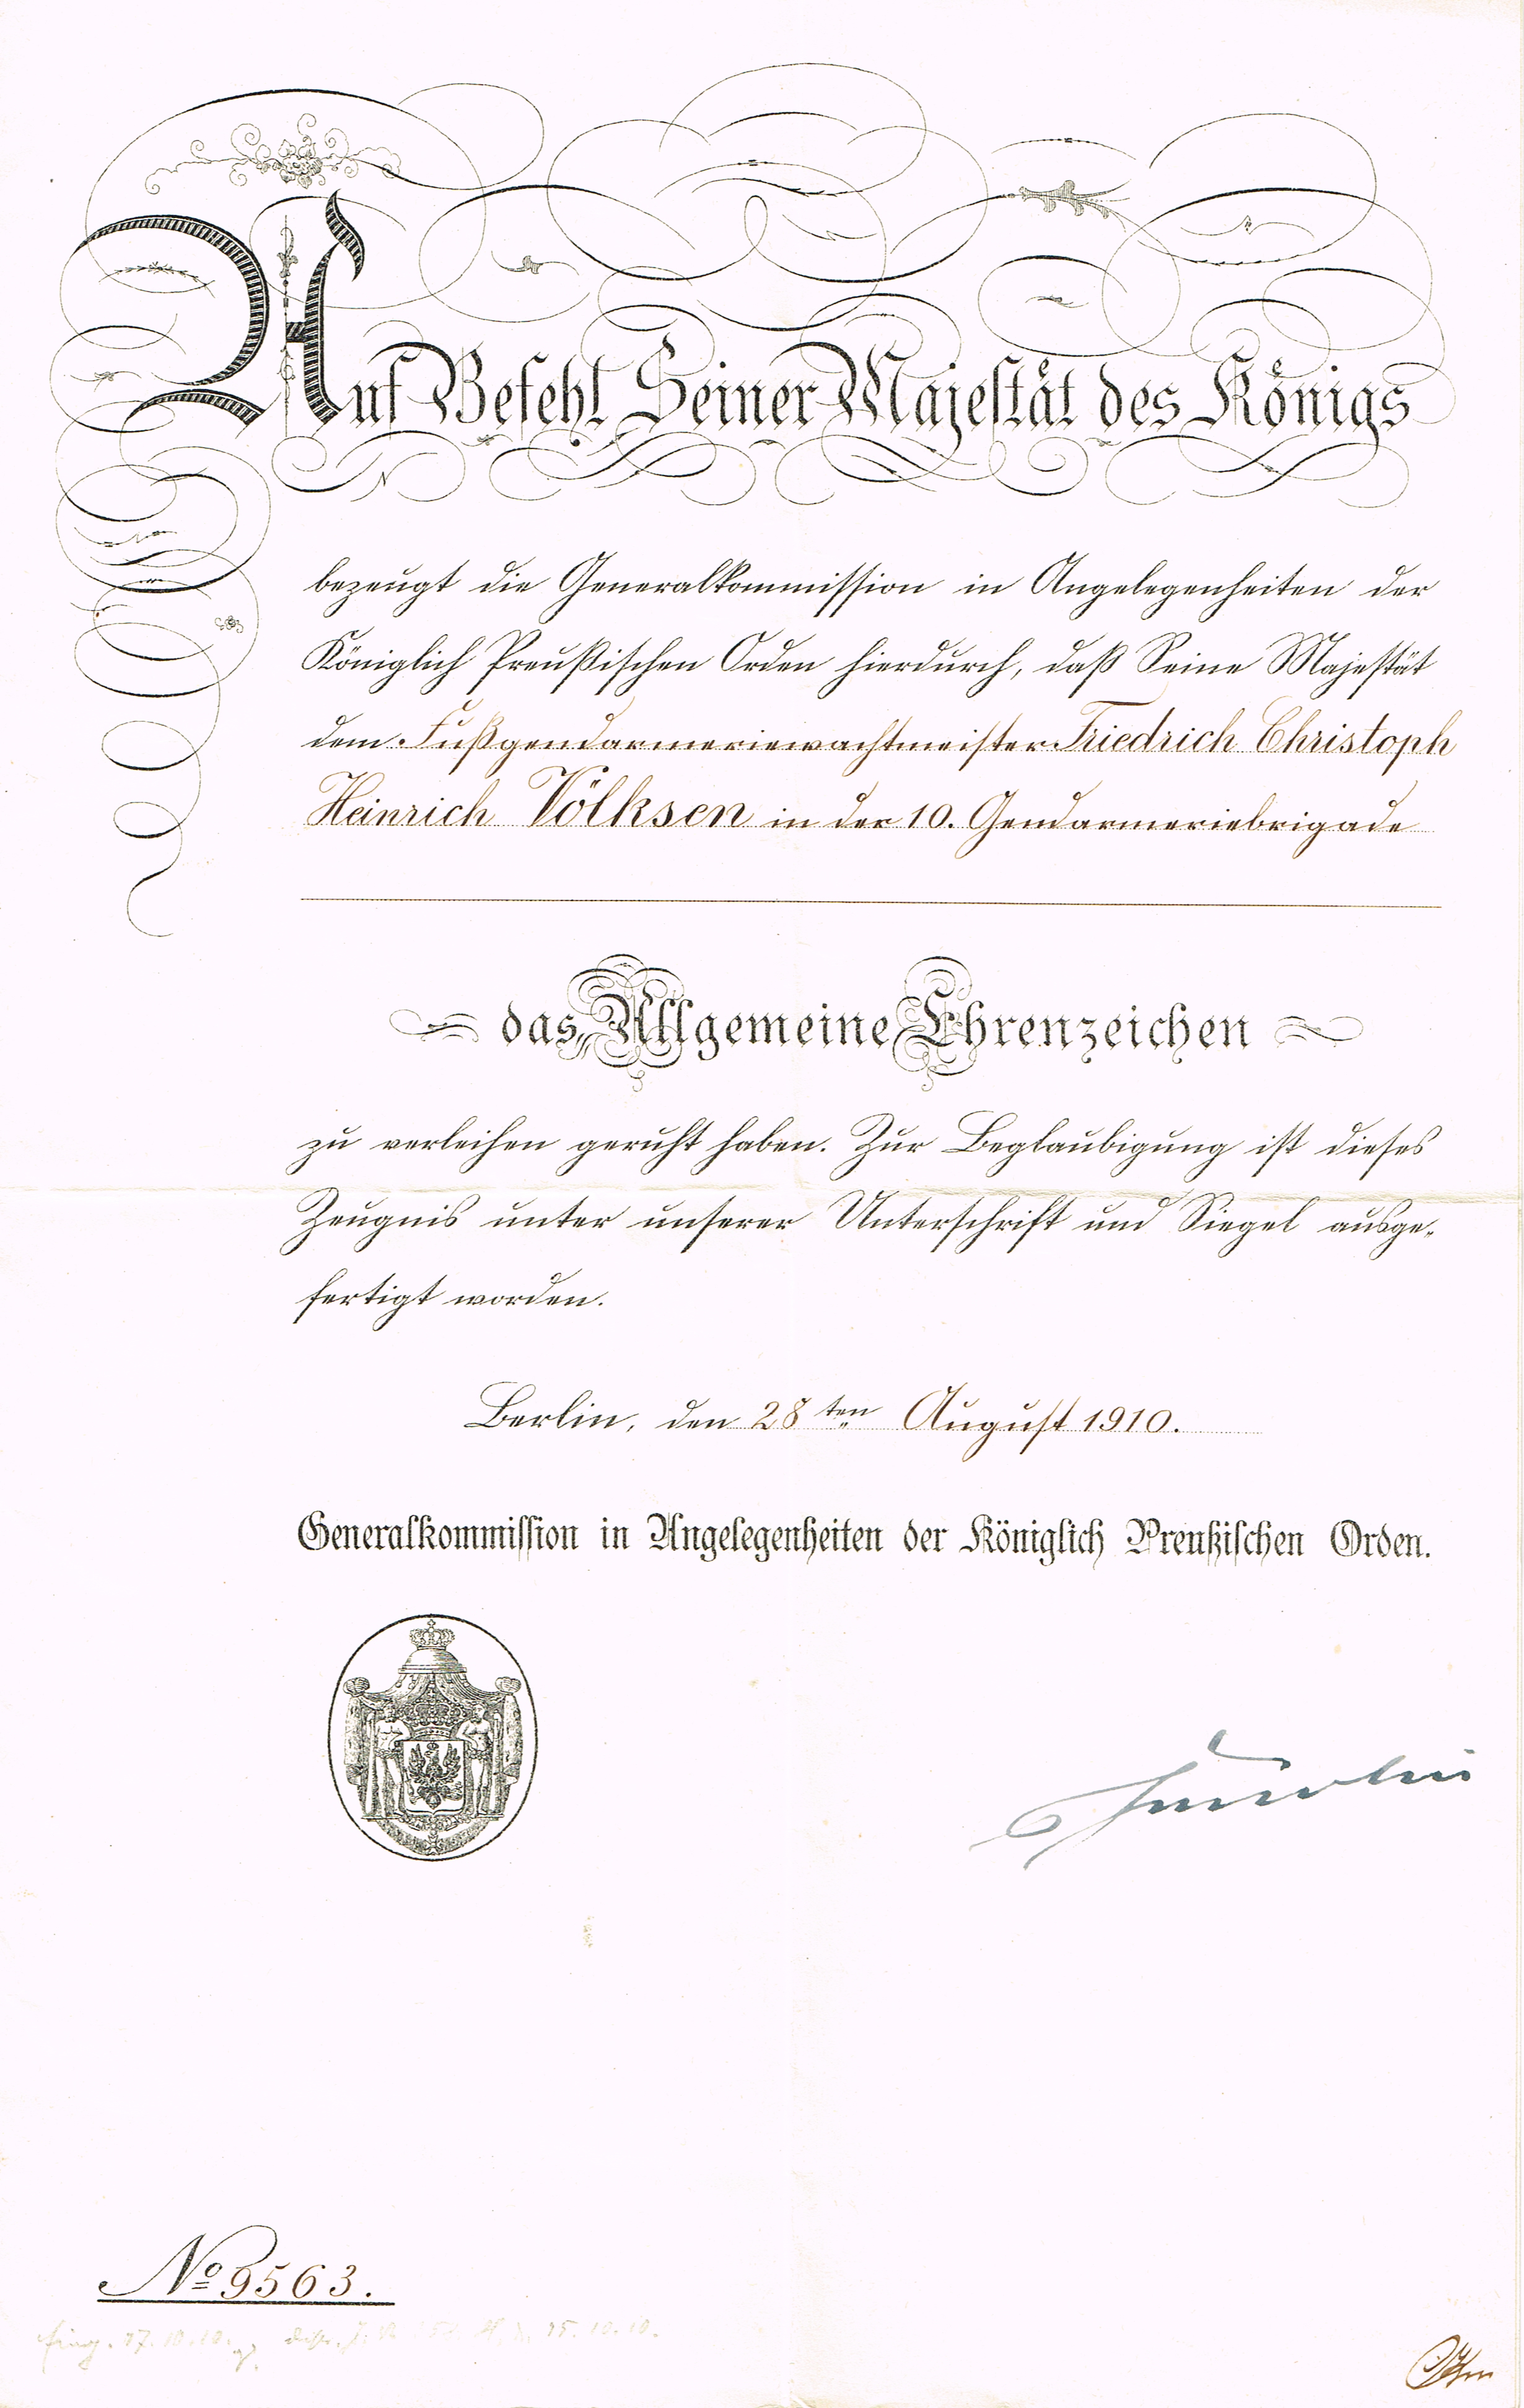 Auf Befehl Seiner Majestät des Königs
bezeugt die Generalkommission in Angelegenheiten der
Königlich Preußischen Orden hierdurch, daß Seine Majestät
dem Fußgendarmeriewachtmeister Friedrich Christoph
Heinrich Völksen in der 10. Gendarmeriebrigade
das Allgemeine Ehrenzeichen
zu verleihen geruht haben. Zur Beglaubigung ist dieses
Zeugnis unter unserer Unterschrift und Siegel ausge-
fertigt worden.
Berlin, den 28ten August 1910.
Generalkommission in Angelegenheiten der Königlich Preußischen Orden.
No 9563.
eing. 17.10.10. 15.10.10.